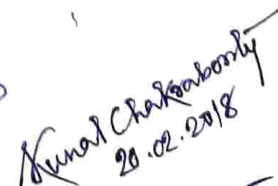 Kunal Chakraborty
20.02.2018